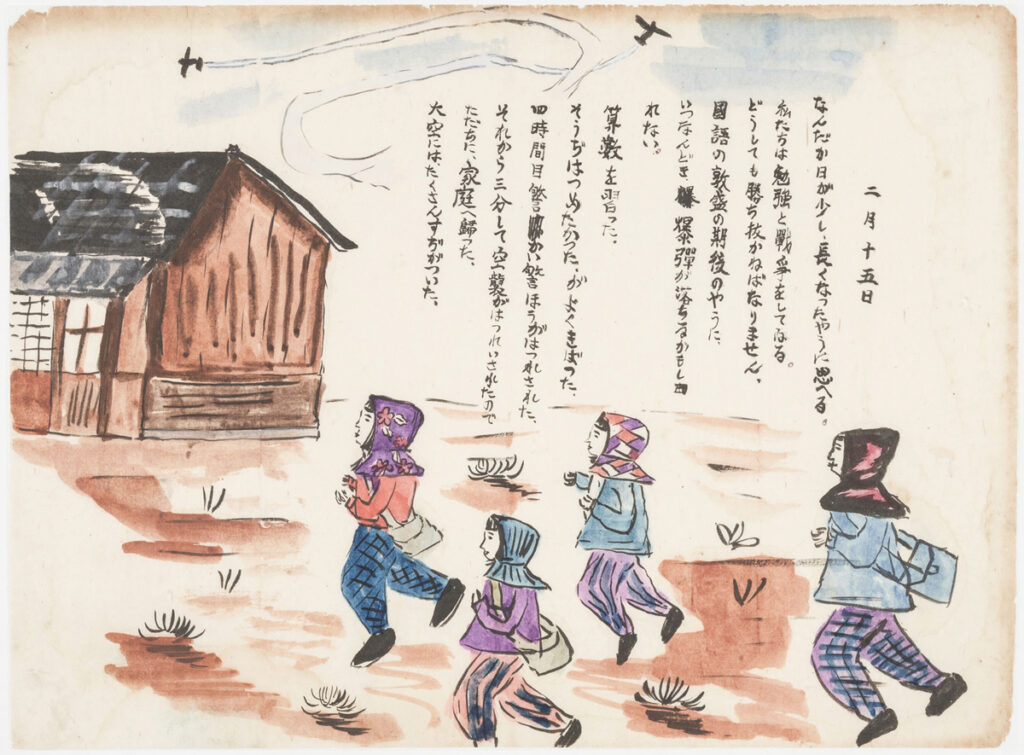 二月十五日
なんだか日が少し、長くなったやうに思へる。
私たちは勉強と戰爭をしてゐる。
どうしても勝ち抜かねばなりません、
國語の敦盛の期後のやうに、
いつなんどき爆彈が落ちるかもし
れない。
算數を習った、
そうぢはつめたかったがよくきばった、
四時間目警かい警ほうがはつれされた、
それから三分して空襲がはつれいされたので
ただちに、家庭へ歸った、
大空には、たくさんすぢがついた、